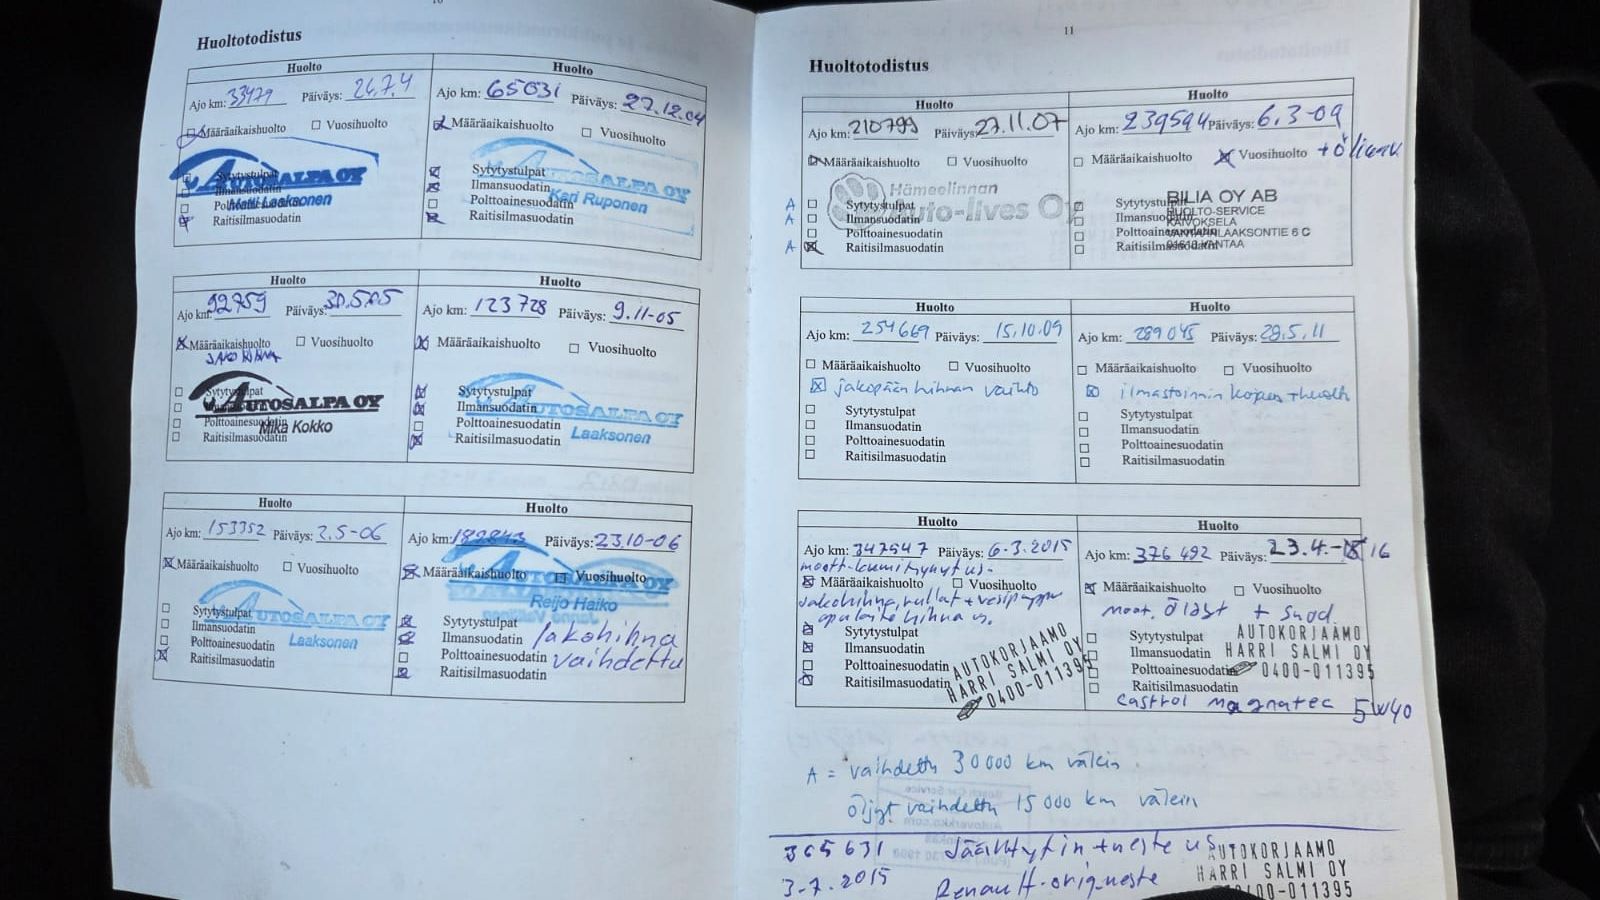 11
Huoltotodistus
Huolto
Ajo km: 33479 Päiväys: 26.7.4
Määräaikaishuolto Vuosihuolto
AUTOSALPA OY
Matti Laaksonen
Raitisilmasuodatin
Huolto
Ajo km: 65031 Päiväys: 27.12.04
Määräaikaishuolto Vuosihuolto
Sytytystulpat
Ilmansuodatin
Polttoainesuodatin
Raitisilmasuodatin
AUTOSALPA OY
Kari Ruponen
Huolto
Ajo km: 92759 Päiväys: 30.5.05
Määräaikaishuolto Vuosihuolto
JAKOHIHNA
Sytytystulpat
AUTOSALPA OY
Polttoainesuodatin
Mika Kokko
Raitisilmasuodatin
Huolto
Ajo km: 123728 Päiväys: 9.11-05
Määräaikaishuolto Vuosihuolto
Sytytystulpat
Ilmansuodatin
Polttoainesuodatin
Raitisilmasuodatin
AUTOSALPA OY
Laaksonen
Huolto
Ajo km: 153352 Päiväys: 2.5-06
Määräaikaishuolto Vuosihuolto
Sytytystulpat
Ilmansuodatin
Polttoainesuodatin
Raitisilmasuodatin
AUTOSALPA OY
Laaksonen
Huolto
Ajo km: 182843 Päiväys: 23.10-06
Määräaikaishuolto Vuosihuolto
AUTOSALPA OY
Reijo Haiko
Sytytystulpat
Ilmansuodatin Jakohihna
Polttoainesuodatin vaihdettu
Raitisilmasuodatin
Huoltotodistus
Huolto
Ajo km: 210799 Päiväys: 27.11.07
Määräaikaishuolto Vuosihuolto
Hämeenlinnan
Auto-Ilves Oy
A Sytytystulpat
A Ilmansuodatin
Polttoainesuodatin
A Raitisilmasuodatin
Huolto
Ajo km: 239594 Päiväys: 6.3-09
Määräaikaishuolto Vuosihuolto
Sytytystulpat
Ilmansuodatin
Polttoainesuodatin
Raitisilmasuodatin
BILIA OY AB
HUOLTO-SERVICE
KAIVOKSELA
VANTAANLAAKSONTIE 6 C
VANTAA
Huolto
Ajo km: 254669 Päiväys: 15.10.09
Määräaikaishuolto Vuosihuolto
jakopään hihnan vaihto
Sytytystulpat
Ilmansuodatin
Polttoainesuodatin
Raitisilmasuodatin
Huolto
Ajo km: 289045 Päiväys: 28.5.11
Määräaikaishuolto Vuosihuolto
ilmastoinnin korjaus + huolto
Sytytystulpat
Ilmansuodatin
Polttoainesuodatin
Raitisilmasuodatin
Huolto
Ajo km: 347547 Päiväys: 6-3.2015
Määräaikaishuolto Vuosihuolto
jakohihna, rullat + vesipumppu
apulaite hihna us.
Sytytystulpat
Ilmansuodatin
Polttoainesuodatin
Raitisilmasuodatin
AUTOKORJAAMO
HARRI SALMI OY
0400-011395
Huolto
Ajo km: 376 492 Päiväys: 23.4.- 16
Määräaikaishuolto Vuosihuolto
moot. öljyt + suod.
Sytytystulpat
Ilmansuodatin
Polttoainesuodatin
Raitisilmasuodatin
AUTOKORJAAMO
HARRI SALMI OY
0400-011395
Castrol magnatec 5W40
A = vaihdettu 30 000 km välein
Öljyt vaihdettu 15 000 km välein
365 631 Jäähdytin + neste us.
3-7.2015 Renault-origineste
AUTOKORJAAMO
HARRI SALMI OY
0400-011395